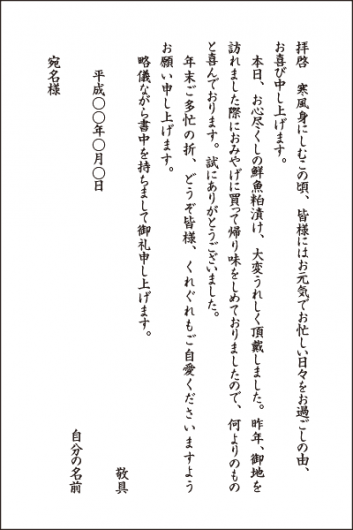 拝啓　寒風身にしむこの頃、皆様にはお元気でお忙しい日々をお過ごしの由、
お喜び申し上げます。
　本日、お心尽くしの鮮魚粕漬け、大変うれしく頂戴しました。昨年、御地を
訪れました際におみやげに買って帰り味をしめておりましたので、何よりのもの
と喜んでおります。試にありがとうございました。
　年末ご多忙の折、どうぞ皆様、くれぐれもご自愛くださいますよう
お願い申し上げます。
　略儀ながら書中を持ちまして御礼申し上げます。
敬具
平成〇〇年〇月〇日
自分の名前
宛名様